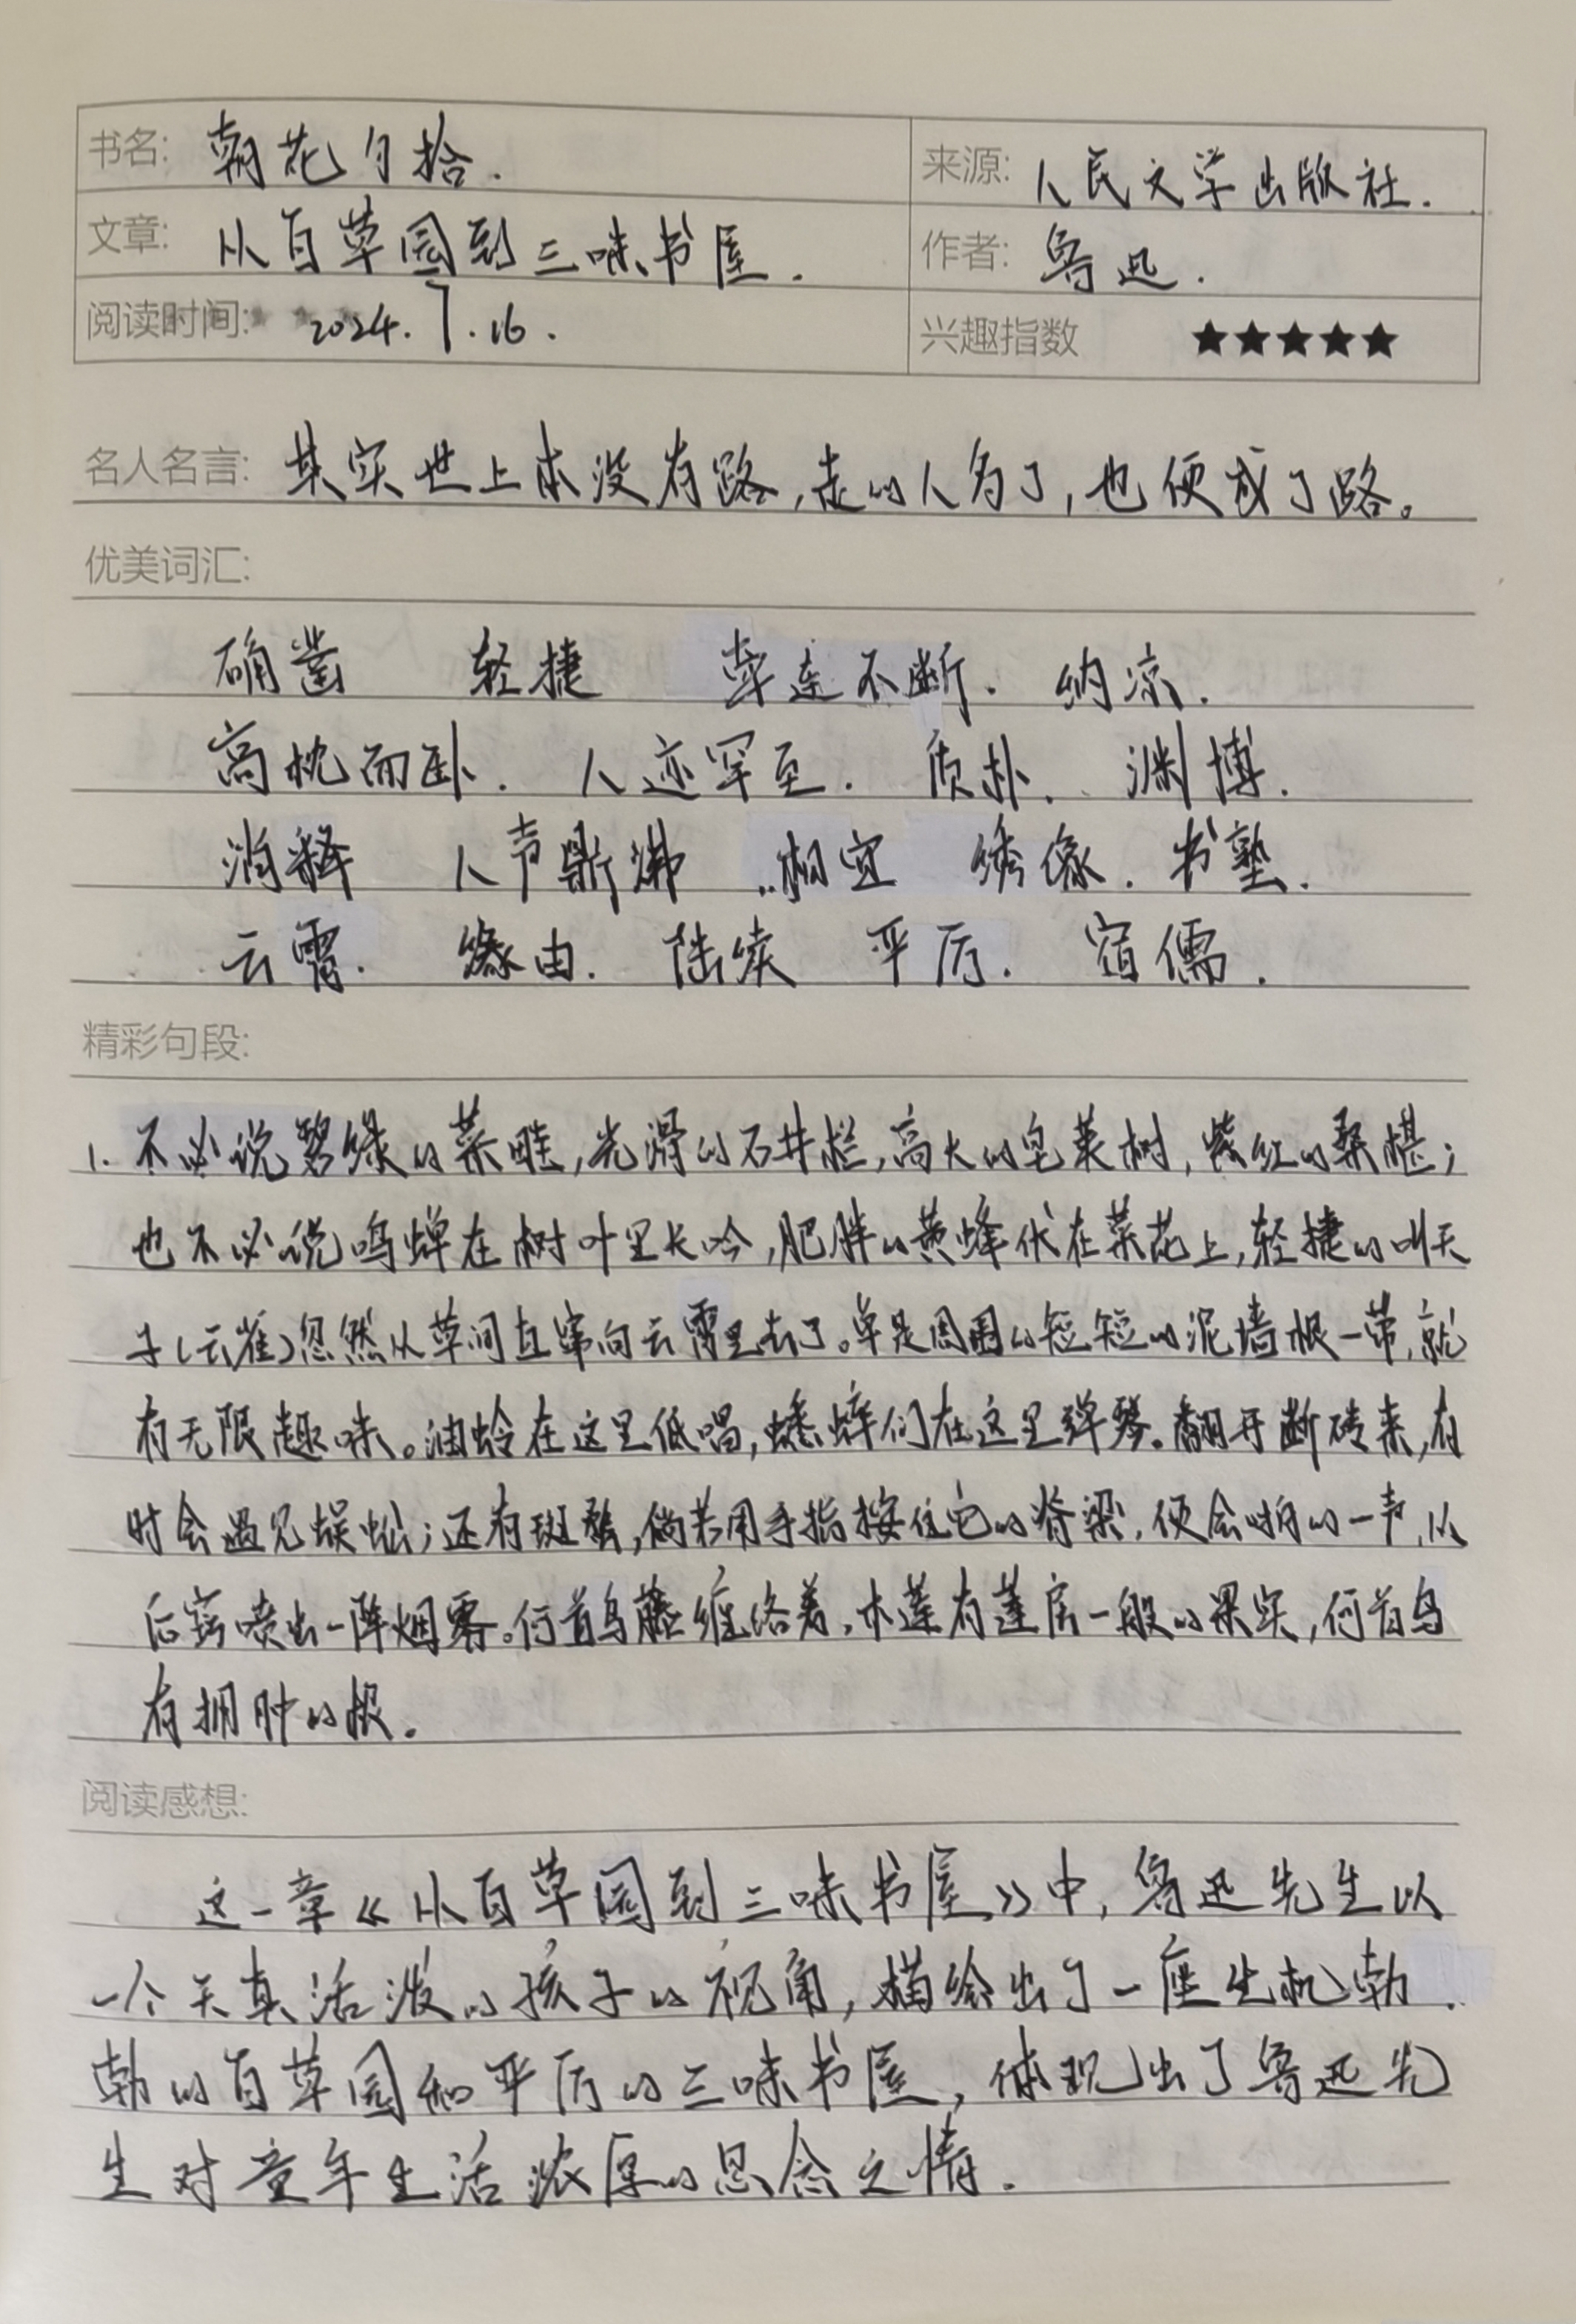 书名: 朝花夕拾.
来源: 人民文学出版社.
文章: 从百草园到三味书屋.
作者: 鲁迅.
阅读时间: 2024.7.16.
兴趣指数 ★★★★★
名人名言: 其实世上本没有路,走的人多了,也便成了路。
优美词汇:
确凿 轻捷 牵连不断. 纳凉.
高枕而卧. 人迹罕至. 质朴. 渊博.
消释 人声鼎沸 相宜 绣像. 书塾.
云霄. 缘由. 陆续 严厉. 宿儒.
精彩句段:
1. 不必说碧绿的菜畦,光滑的石井栏,高大的皂荚树,紫红的桑椹;
也不必说鸣蝉在树叶里长吟,肥胖的黄蜂伏在菜花上,轻捷的叫天
子(云雀)忽然从草间直窜向云霄里去了。单是周围的短短的泥墙根一带,就
有无限趣味。油蛉在这里低唱,蟋蟀们在这里弹琴。翻开断砖来,有
时会遇见蜈蚣;还有斑蝥,倘若用手指按住它的脊梁,便会啪的一声,从
后窍喷出一阵烟雾。何首乌藤缠络着,木莲有莲房一般的果实,何首乌
有拥肿的根.
阅读感想:
这一章《从百草园到三味书屋》中,鲁迅先生以
一个天真活泼的孩子的视角,描绘出了一座生机勃
勃的百草园和严厉的三味书屋,体现出了鲁迅先
生对童年生活浓厚的思念之情.